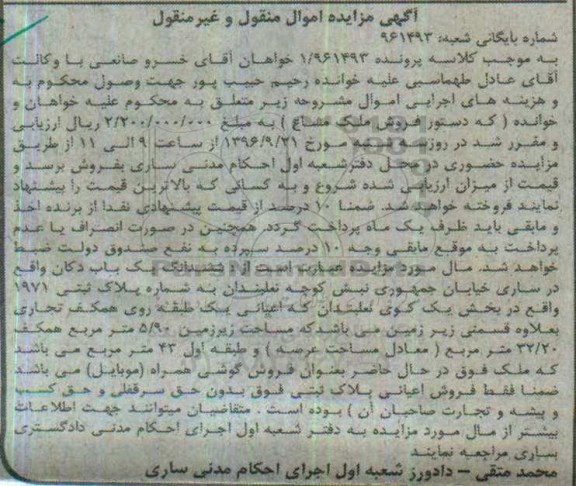 آگهی مزایده اموال منقول و غیرمنقول
شماره بایگانی شعبه: ۹۶۱۴۹۳
به موجب کلاسه پرونده ۱/۹۶۱۴۹۳ خواهان آقای خسرو صانعی با وکالت
آقای عادل طهماسبی علیه خوانده رحیم حبیب پور جهت وصول محکوم به
و هزینه های اجرایی اموال مشروحه زیر متعلق به محکوم علیه خواهان و
خوانده ( که دستور فروش ملک مشاع ) به مبلغ ۲/۲۰۰/۰۰۰/۰۰۰ ریال ارزیابی
و مقرر شد در روز سه شنبه مورخ ۱۳۹۶/۹/۲۱ از ساعت ۹ الی ۱۱ از طریق
مزایده حضوری در محل دفترشعبه اول احکام مدنی ساری بفروش برسد و
قیمت از میزان ارزیابی شده شروع و به کسانی که بالاترین قیمت را پیشنهاد
نمایند فروخته خواهد شد. ضمنا ۱۰ درصد از قیمت پیشنهادی نقدا از برنده اخذ
و مابقی باید ظرف یک ماه پرداخت گردد. همچنین در صورت انصراف یا عدم
پرداخت به موقع مابقی وجه ۱۰ درصد سپرده به نفع صندوق دولت ضبط
خواهد شد. مال مورد مزایده عبارت است از : ششدانگ یک باب دکان واقع
در ساری خیابان جمهوری نبش کوچه نعلبندان به شماره پلاک ثبتی ۱۹۷۱
واقع در بخش یک کوی نعلبندان که اعیانی یک طبقه روی همکف تجاری
بعلاوه قسمتی زیر زمین می باشدکه مساحت زیرزمین ۵/۹۰ متر مربع همکف
۳۲/۲۰ متر مربع ( معادل مساحت عرصه ) و طبقه اول ۴۳ متر مربع می باشد
که ملک فوق در حال حاضر بعنوان فروش گوشی همراه (موبایل) می باشد
ضمنا فقط فروش اعیانی پلاک ثبتی فوق بدون حق سرقفلی و حق کسب
و پیشه و تجارت صاحبان آن ) بوده است . متقاضیان میتوانند جهت اطلاعات
بیشتر از مال مورد مزایده به دفتر شعبه اول اجرای احکام مدنی دادگستری
ساری مراجعه نمایند
محمد متقی – دادورز شعبه اول اجرای احکام مدنی ساری